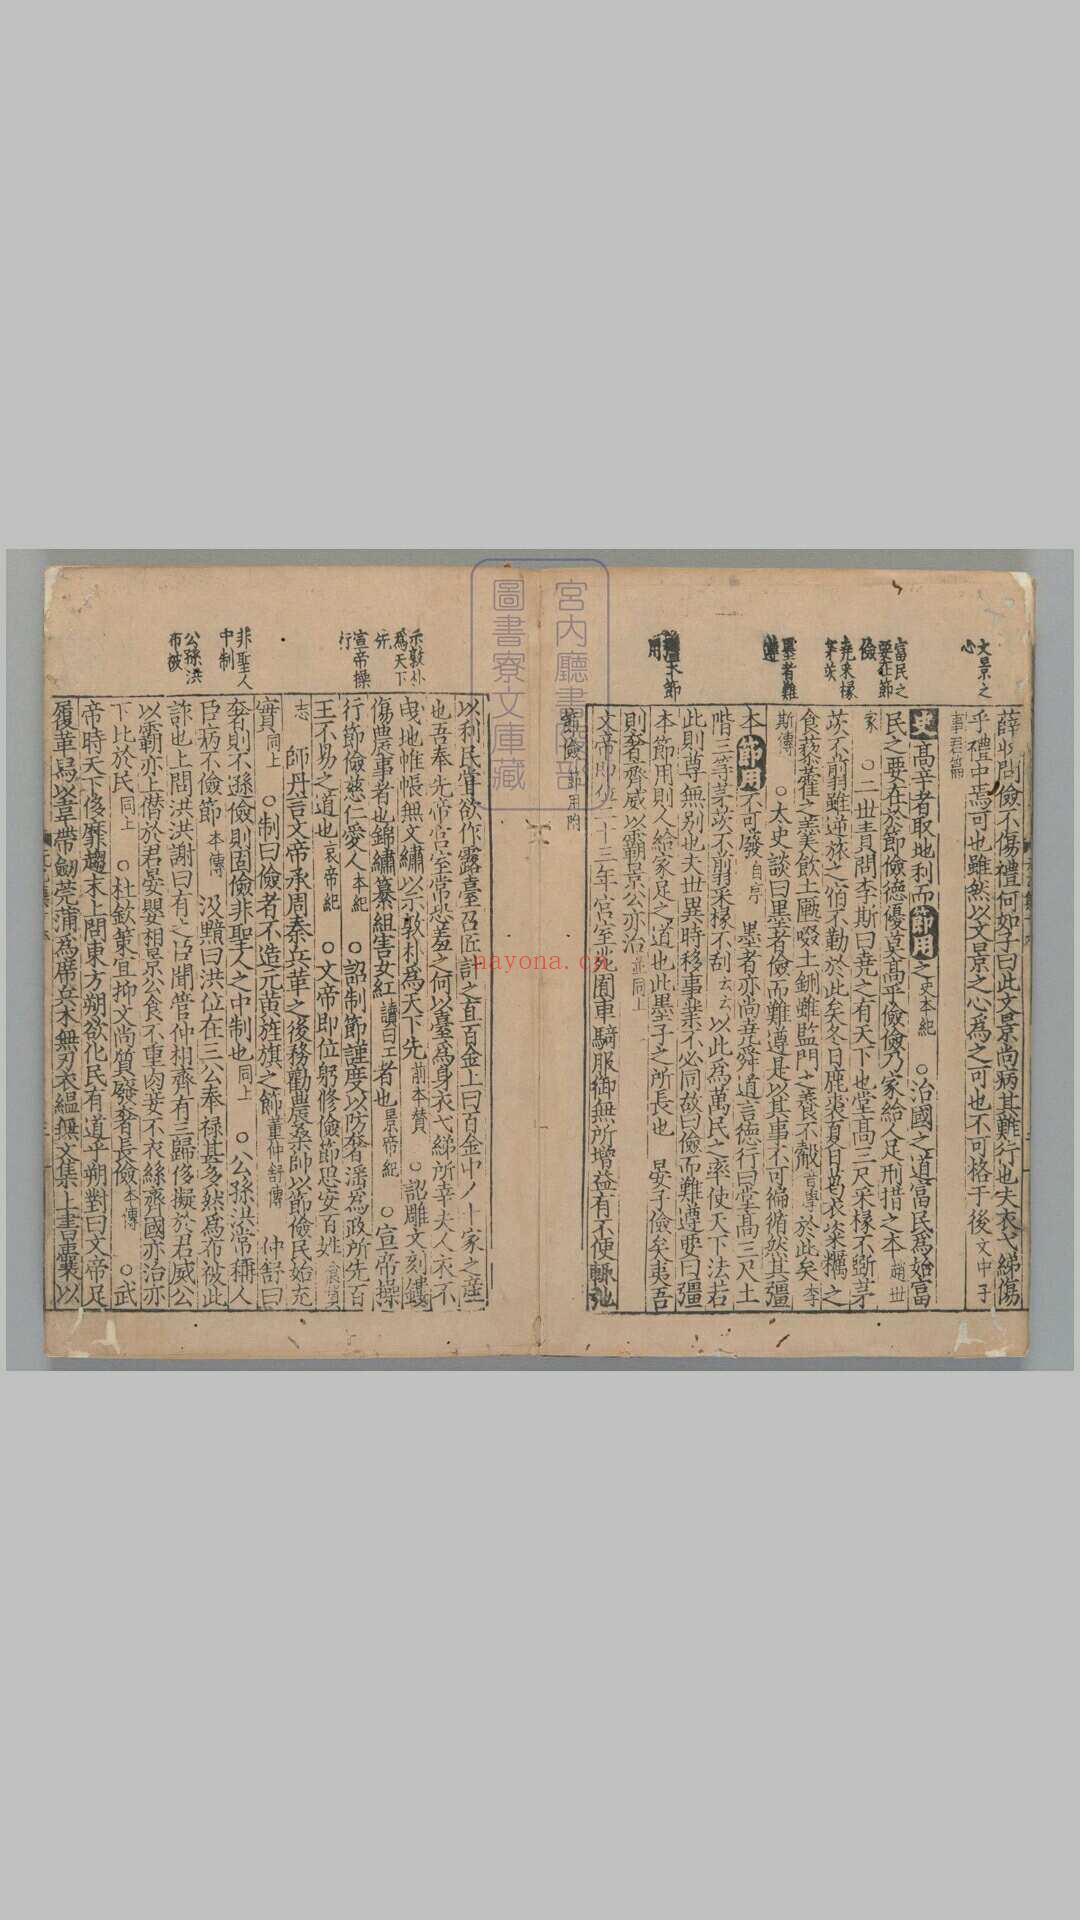 文景之
心
富民之
要在節
儉
堯采椽
茅茨
墨者難
遵
彊本節
用
薛收問儉不傷禮何如子曰此文景尚病其難行也夫衣弋綈傷
乎禮中焉可也雖然以文景之心為之可也不可格于後文中子
事君篇
史高辛者取地利而節用之史本紀 ○治國之道富民為始富
民之要在於節儉德優莫高乎儉儉乃家給人足刑措之本趙世
家 ○二世責問李斯曰堯之有天下也堂高三尺采椽不斲茅
茨不翦雖逆旅之宿不勤於此矣冬日鹿裘夏日葛衣粢糲之
食藜藿之羮飲土匭啜土鉶雖監門之養不觳於此矣李
斯傳 ○太史談曰墨者儉而難遵是以其事不可徧循然其彊
本節用不可廢自序 墨者亦尚堯舜道言德行曰堂高三尺土
階三等茅茨不翦采椽不刮云云以此為萬民之率使天下法若
此則尊無別也夫世異時移事業不必同故曰儉而難遵要曰彊
本節用則人給家足之道也此墨子之所長也 晏子儉矣夷吾
則奢齊威以霸景公亦治並同上
文帝即位二十三年宮室苑囿車騎服御無所增益有不便輒弛
節儉節用附
宮内廳書陵部
圖書寮文庫藏
nayona.cn
示敦朴
為天下
先
宣帝操
行
非聖人
中制
公孫洪
布被
以利民嘗欲作露臺召匠計之直百金上曰百金中人十家之產
也吾奉先帝宮室常恐羞之何以臺為身衣弋綈所幸夫人衣不
曳地帷帳無文繡以示敦朴為天下先前本贊 ○詔雕文刻鏤
傷農事者也錦繡纂組害女紅讀曰工者也景帝紀 ○宣帝操
行節儉慈仁愛人本紀 ○詔制節謹度以防奢淫為政所先百
王不易之道也哀帝紀 ○文帝即位躬修儉節思安百姓食貨
志 師丹言文帝承周秦兵革之後務勸農桑帥以節儉民始充
實同上 ○制曰儉者不造元黃旌旗之節董仲舒傳 仲舒曰
奢則不遜儉則固儉非聖人之中制也同上 ○公孫洪常稱人
臣病不儉節本傳 汲黯曰洪位在三公奉祿甚多然為布被此
詐也上問洪洪謝曰有之臣聞管仲相齊有三歸侈擬於君威公
以霸亦上僭於君晏嬰相景公食不重肉妾不衣絲齊國亦治亦
下比於民同上 ○杜欽策宜抑文尚質廢奢長儉本傳 ○武
帝時天下侈靡趨末上問東方朔欲化民有道乎朔對曰文帝足
履革舄以韋帶劒莞蒲為席兵木無刃衣縕無文集上書囊以